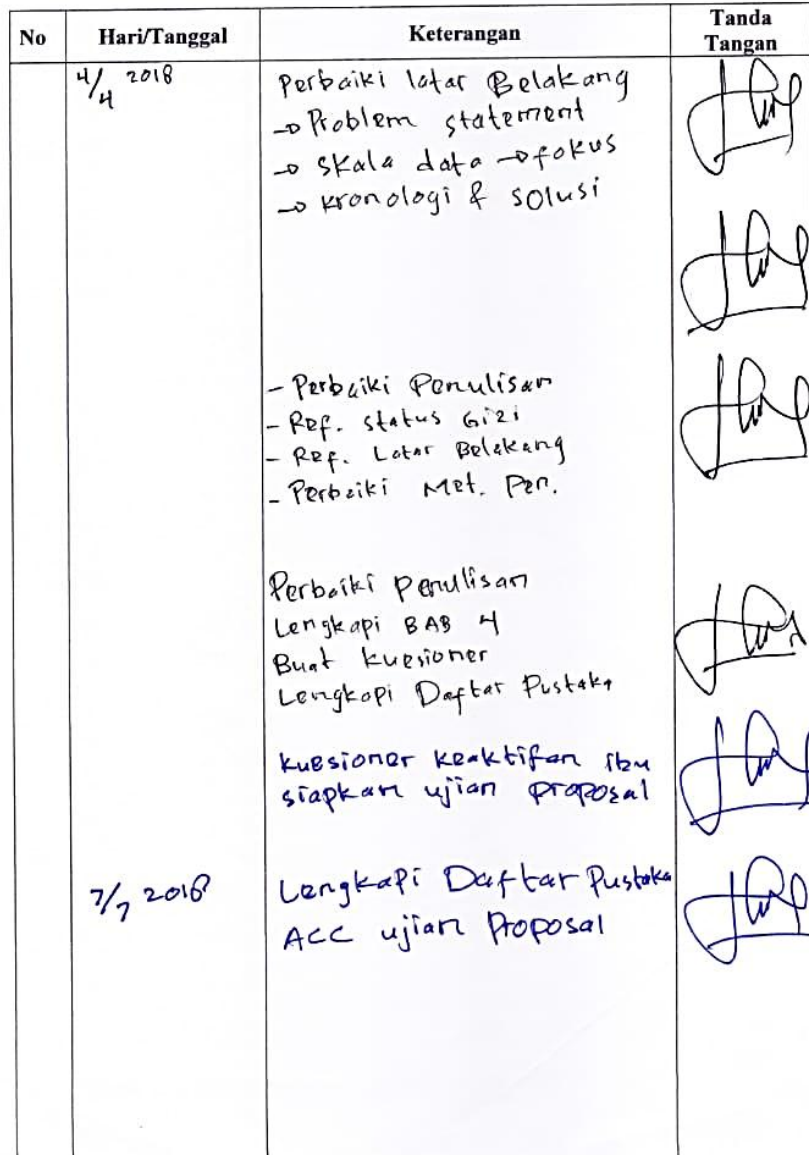 No Hari/Tanggal Keterangan Tanda Tangan
4/4 2018 Perbaiki latar Belakang
→ Problem statement
→ skala data → fokus
→ kronologi & solusi
- Perbaiki Penulisan
- Ref. status Gizi
- Ref. Latar Belakang
- Perbaiki Met. Pen.
Perbaiki penulisan
Lengkapi BAB 4
Buat kuesioner
Lengkapi Daftar Pustaka
kuesioner keaktifan ibu
siapkan ujian proposal
7/7 2018 Lengkapi Daftar Pustaka
ACC ujian Proposal